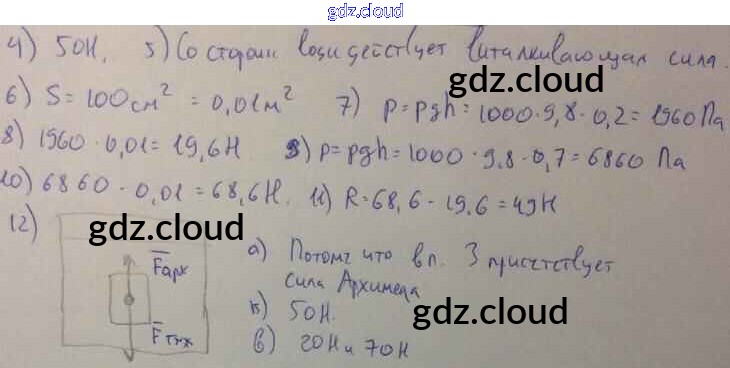 gdz.cloud
4) 50Н. 5) Со стороны воды действует выталкивающая сила.
gdz.cloud
6) S = 100 см² = 0,01 м² 7) p = ρgh = 1000 · 9,8 · 0,2 = 1960 Па
8) 1960 · 0,01 = 19,6 Н 9) p = ρgh = 1000 · 9.8 · 0,7 = 6860 Па
10) 6860 · 0,01 = 68,6 Н. 11) R = 68,6 - 19,6 = 49Н
12)
gdz.cloud
Fарх
Fтяж
а) Потому что в п. 3 присутствует
сила Архимеда
б) 50Н.
gdz.cloud
в) 20Н и 70Н